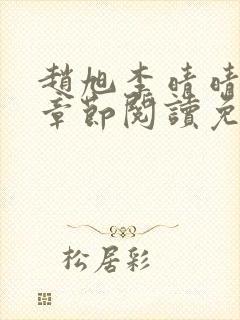 趙旭李晴晴
章節閱讀免
松居彩